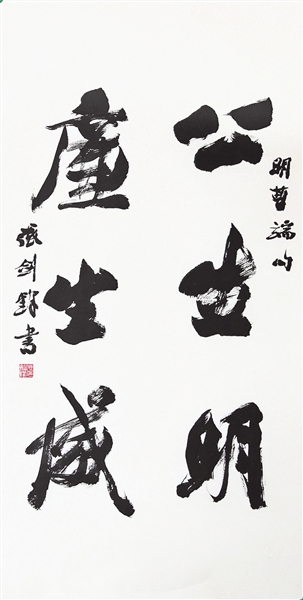 明曹端句
公生明
廉生威
張剑鋒書